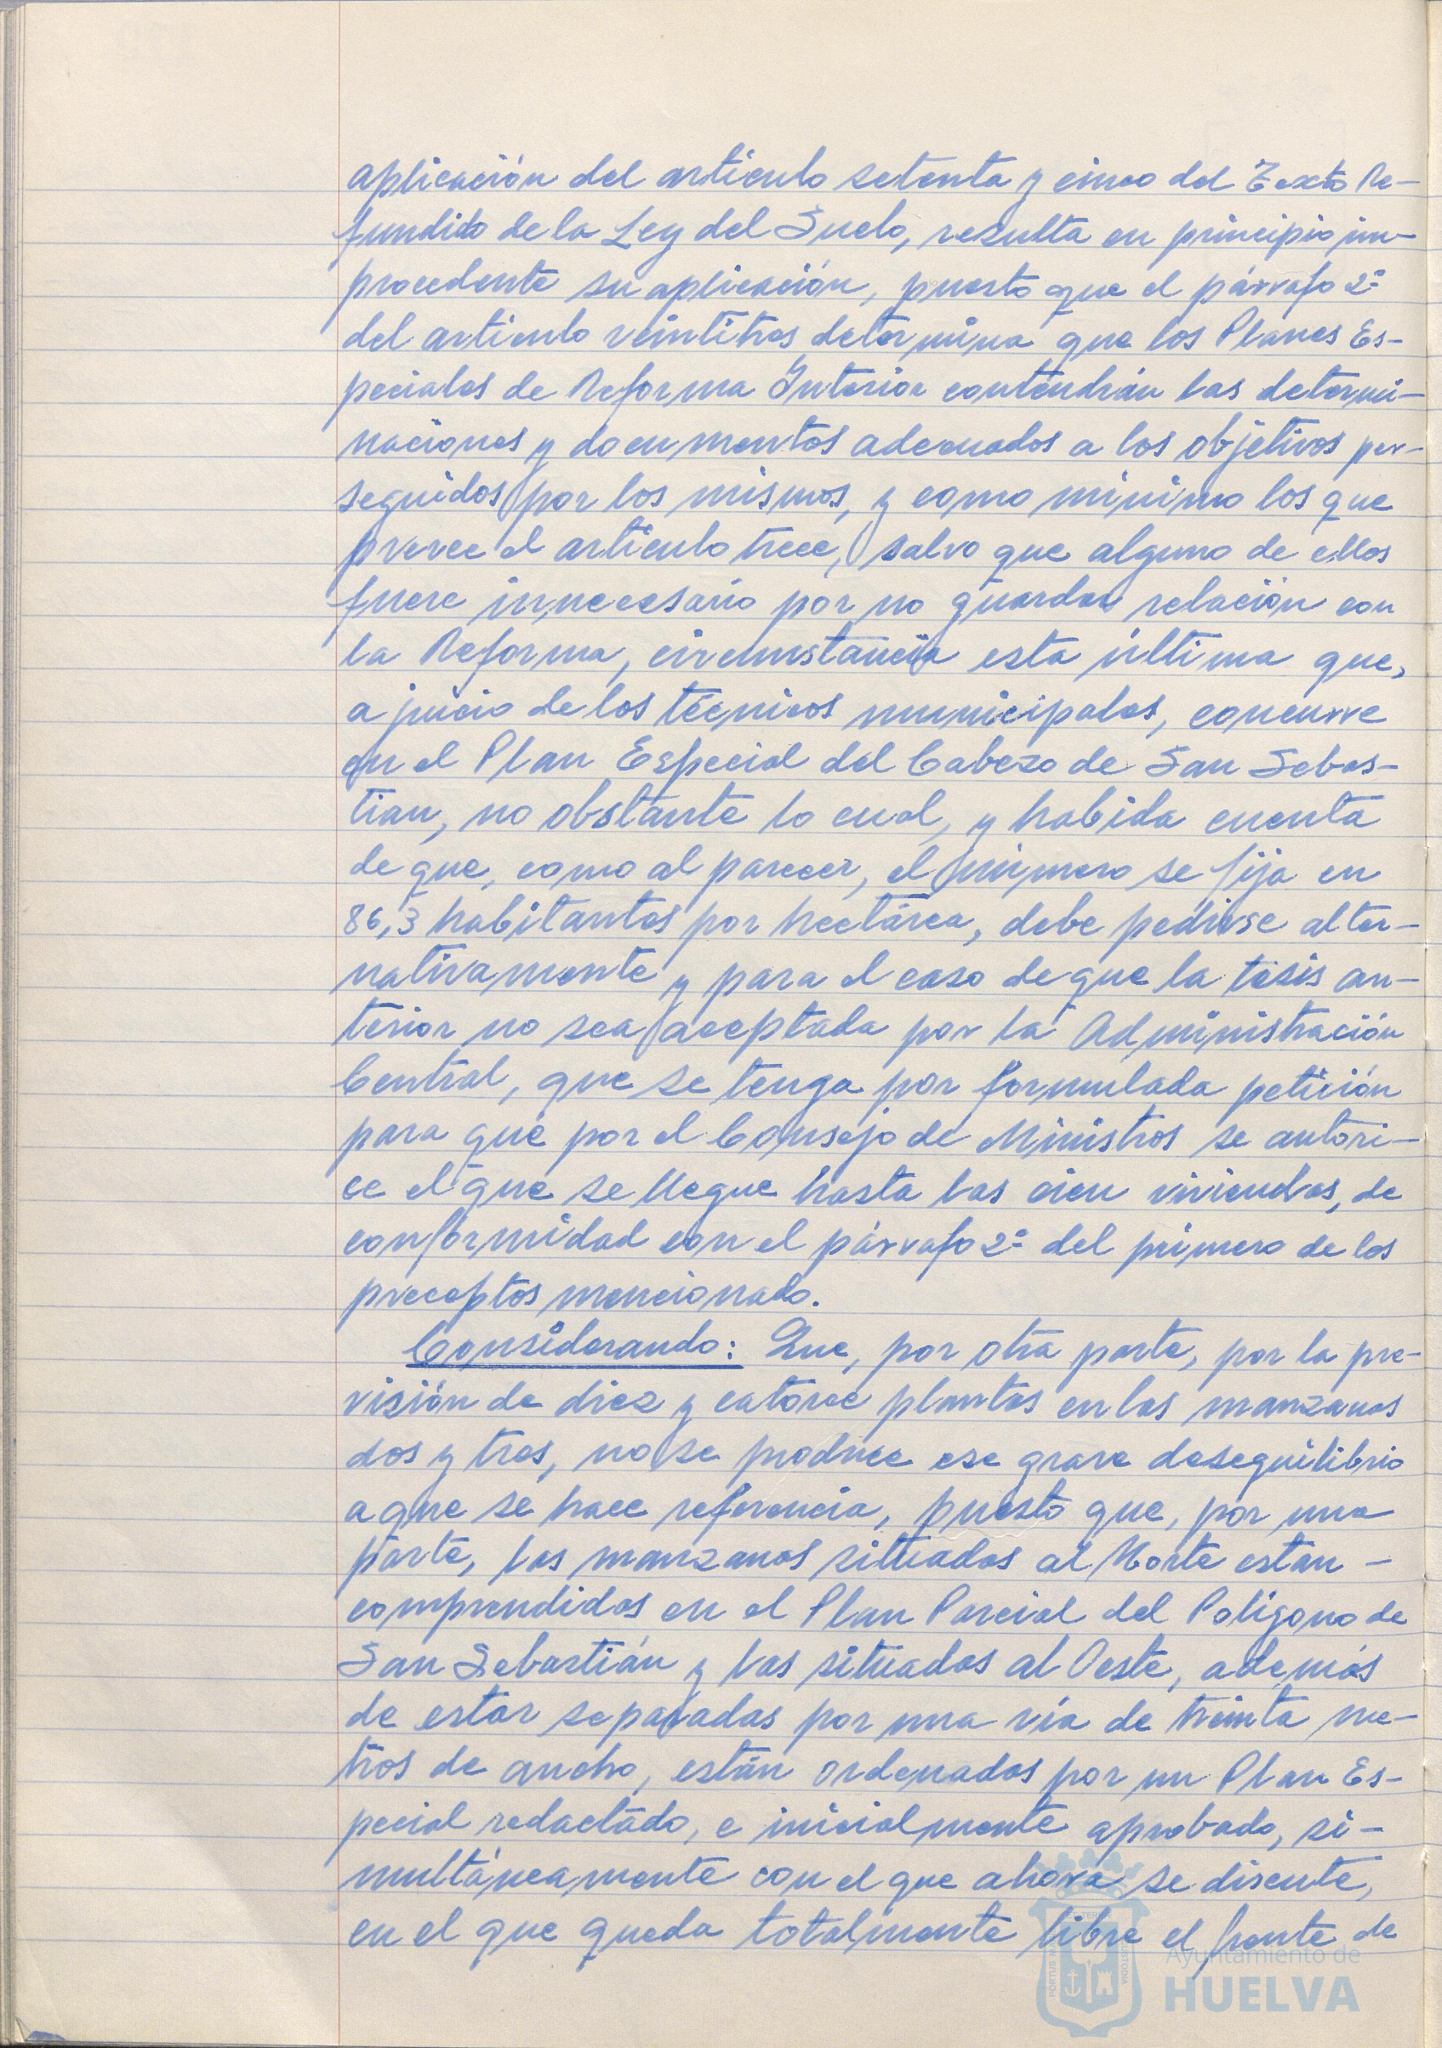 aplicación del artículo setenta y cinco del Texto Re-
fundido de la Ley del Suelo, resulta en principio im-
procedente su aplicación, puesto que el párrafo 2º
del articulo veintitres determina que los Planes Es-
peciales de Reforma Interior contendrán las determi-
naciones y documentos adecuados a los objetivos per-
seguidos por los mismos, y como minimo los que
prevee el articulo trece, salvo que alguno de ellos
fuere innecesario por no guardar relación con
la Reforma, circunstancia esta última que,
a juicio de los técnicos municipales, concurre
en el Plan Especial del Cabezo de San Sebas-
tian, no obstante lo cual, y habida cuenta
de que, como al parecer, el número se fija en
86,3 habitantes por hectárea, debe pedirse alter-
nativamente y para el caso de que la tesis an-
terior no sea aceptada por la Administración
Central, que se tenga por formulada petición
para que por el Consejo de Ministros se autori-
ce el que se llegue hasta las cien viviendas, de
conformidad con el párrafo 2º del primero de los
preceptos mencionado.
Considerando: Que, por otra parte, por la pre-
visión de diez y catorce plantas en las manzanas
dos y tres, no se produce ese grave desequilibrio
a que se hace referencia, puesto que, por una
parte, las manzanas situadas al Norte estan -
comprendidas en el Plan Parcial del Polígono de
San Sebastián y las situadas al Oeste, además
de estar separadas por una vía de treinta me-
tros de ancho, están ordenadas por un Plan Es-
pecial redactado, e inicialmente aprobado, si-
multáneamente con el que ahora se discute,
en el que queda totalmente libre el frente de
Ayuntamiento de
HUELVA